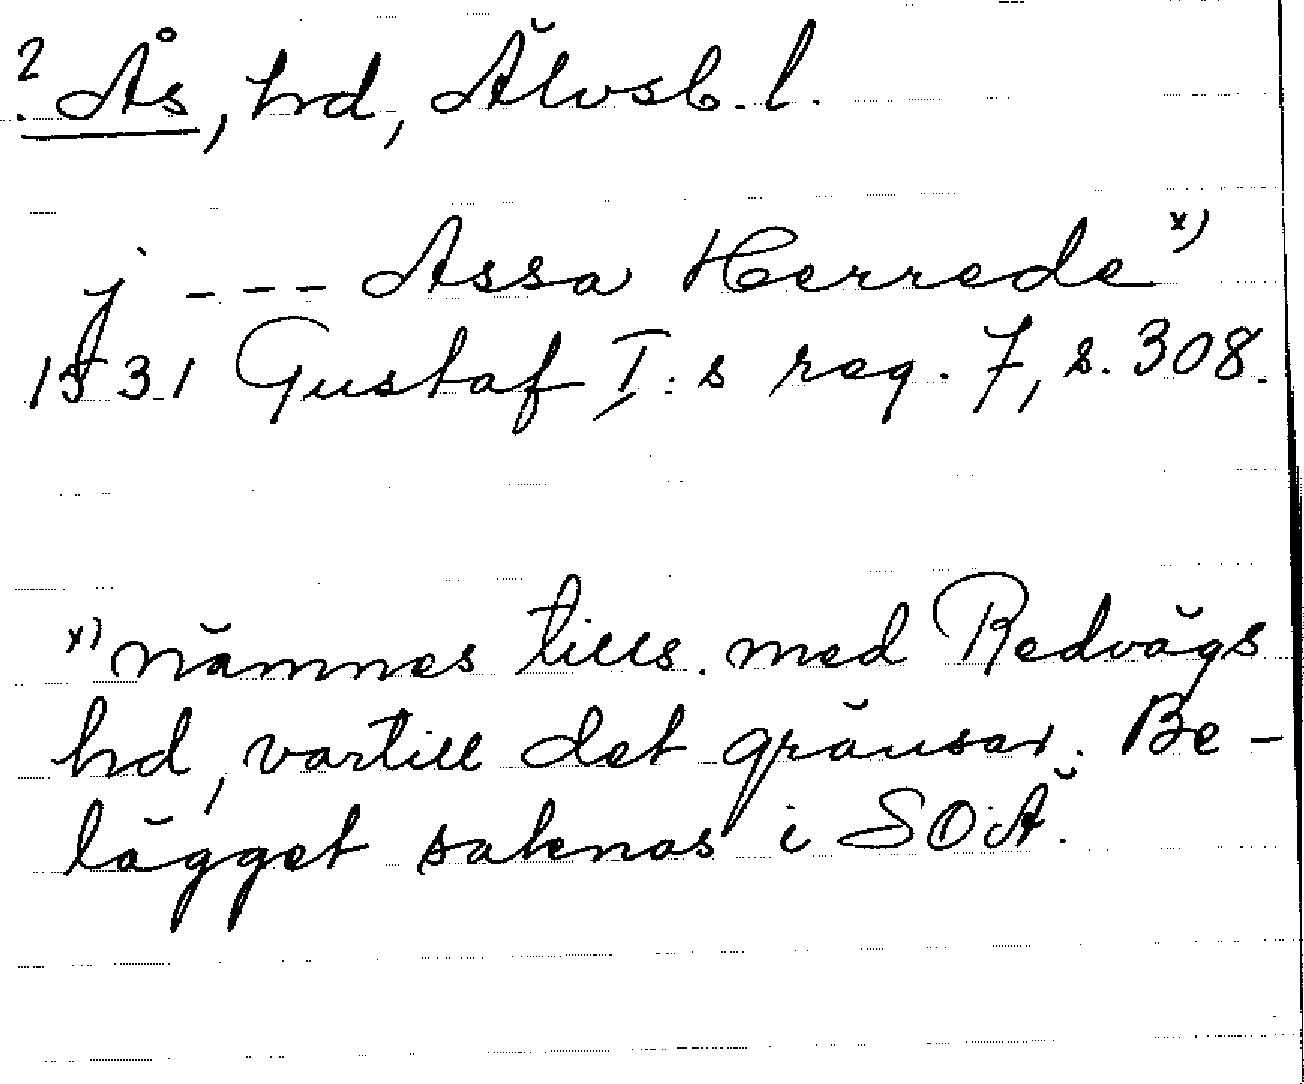 ? Ås, hd, Älvsb. l.
j --- Assa Herrede x)
1531 Gustaf I:s reg. 7, s. 308.
x) nämnes tills. med Redvägs
hd, vartill det gränsar. Be-
lägget saknas i SOÄ.